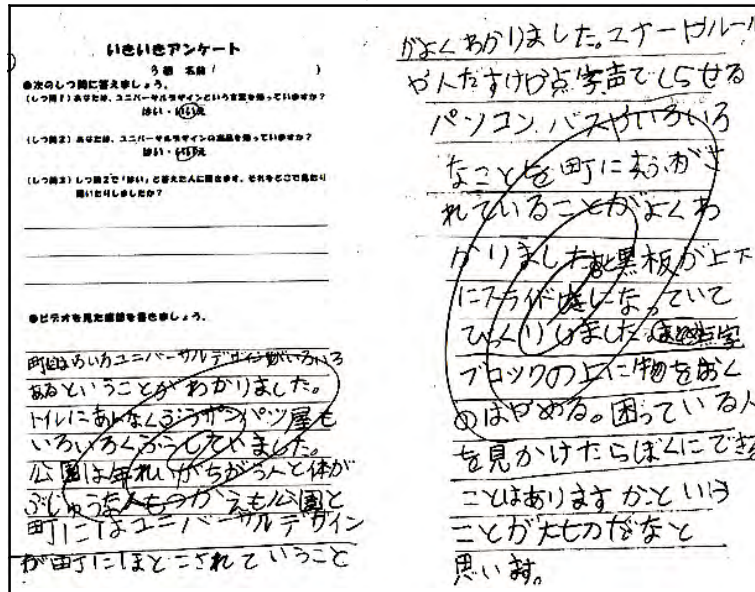 いきいきアンケート
3組 名前( )
●次のしつ問に答えましょう。
(しつ問1) あなたは、ユニバーサルデザインという言葉を知っていますか?
はい・いいえ
(しつ問2) あなたは、ユニバーサルデザインの商品を知っていますか?
はい・いいえ
(しつ問3) しつ問2で「はい」と答えた人に聞きます。それをどこで見たり
聞いたりしましたか?
●ビデオを見た感想を書きましょう。
町にはいろいろユニバーサルデザインがいろいろ
あるということがわかりました。
トイレにあんなくふうやパンツ屋も
いろいろくふうしていました。
公園は年れいがちがう人と体が
ふじゆうな人ものがえも公園と
町にはユニバーサルデザイン
が町にほどこされていうこと
がよくわかりました。エナードルール
や人だすけや点字声でしらせる
パソコン、バスやいろいろ
なことを町にまふがさ
れていることがよくわ
かりました。黒板が上下
にスライド式になっていて
びっくりしました。点字
ブロックの上に物をおく
のはやめる。困っている人
を見かけたらぼくにできる
ことはありますかという
ことが大切だなと
思います。